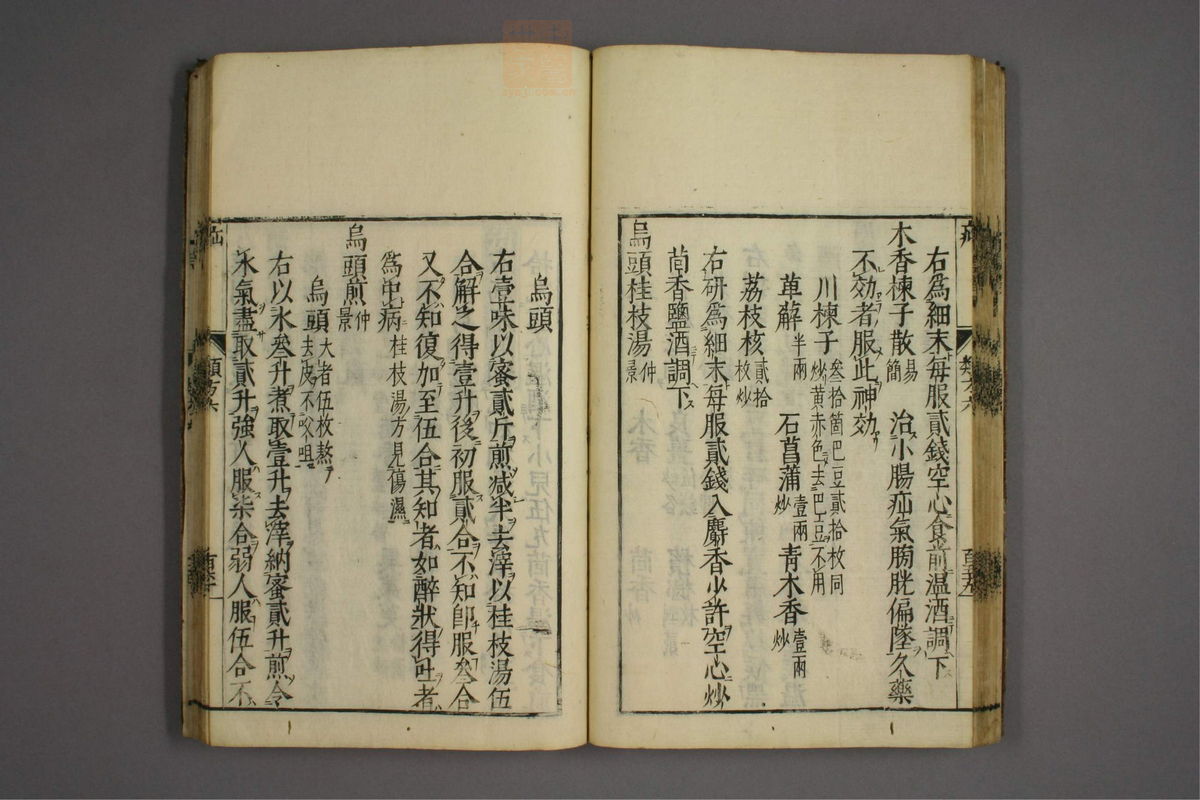 右爲細末每服貳錢空心食前溫酒調下
木香楝子散易簡 治小腸疝氣膀胱偏墜久藥
不効者服此神効
川楝子叁拾箇巴豆貳拾枚同炒黃赤色去巴豆不用
萆薢半兩 石菖蒲壹兩炒 青木香壹兩炒
荔枝核貳拾枚炒
右研爲細末每服貳錢入麝香少許空心炒
茴香鹽酒調下
烏頭桂枝湯仲景
烏頭
右壹味以蜜貳斤煎減半去滓以桂枝湯伍
合解之得壹升後初服貳合不知卽服叁合
又不知復加至伍合其知者如醉狀得吐者
爲中病桂枝湯方見傷濕
烏頭煎仲景
烏頭大者伍枚熬去皮不㕮咀
右以水叁升煮取壹升去滓納蜜貳升煎令
水氣盡取貳升強人服柒合弱人服伍合不